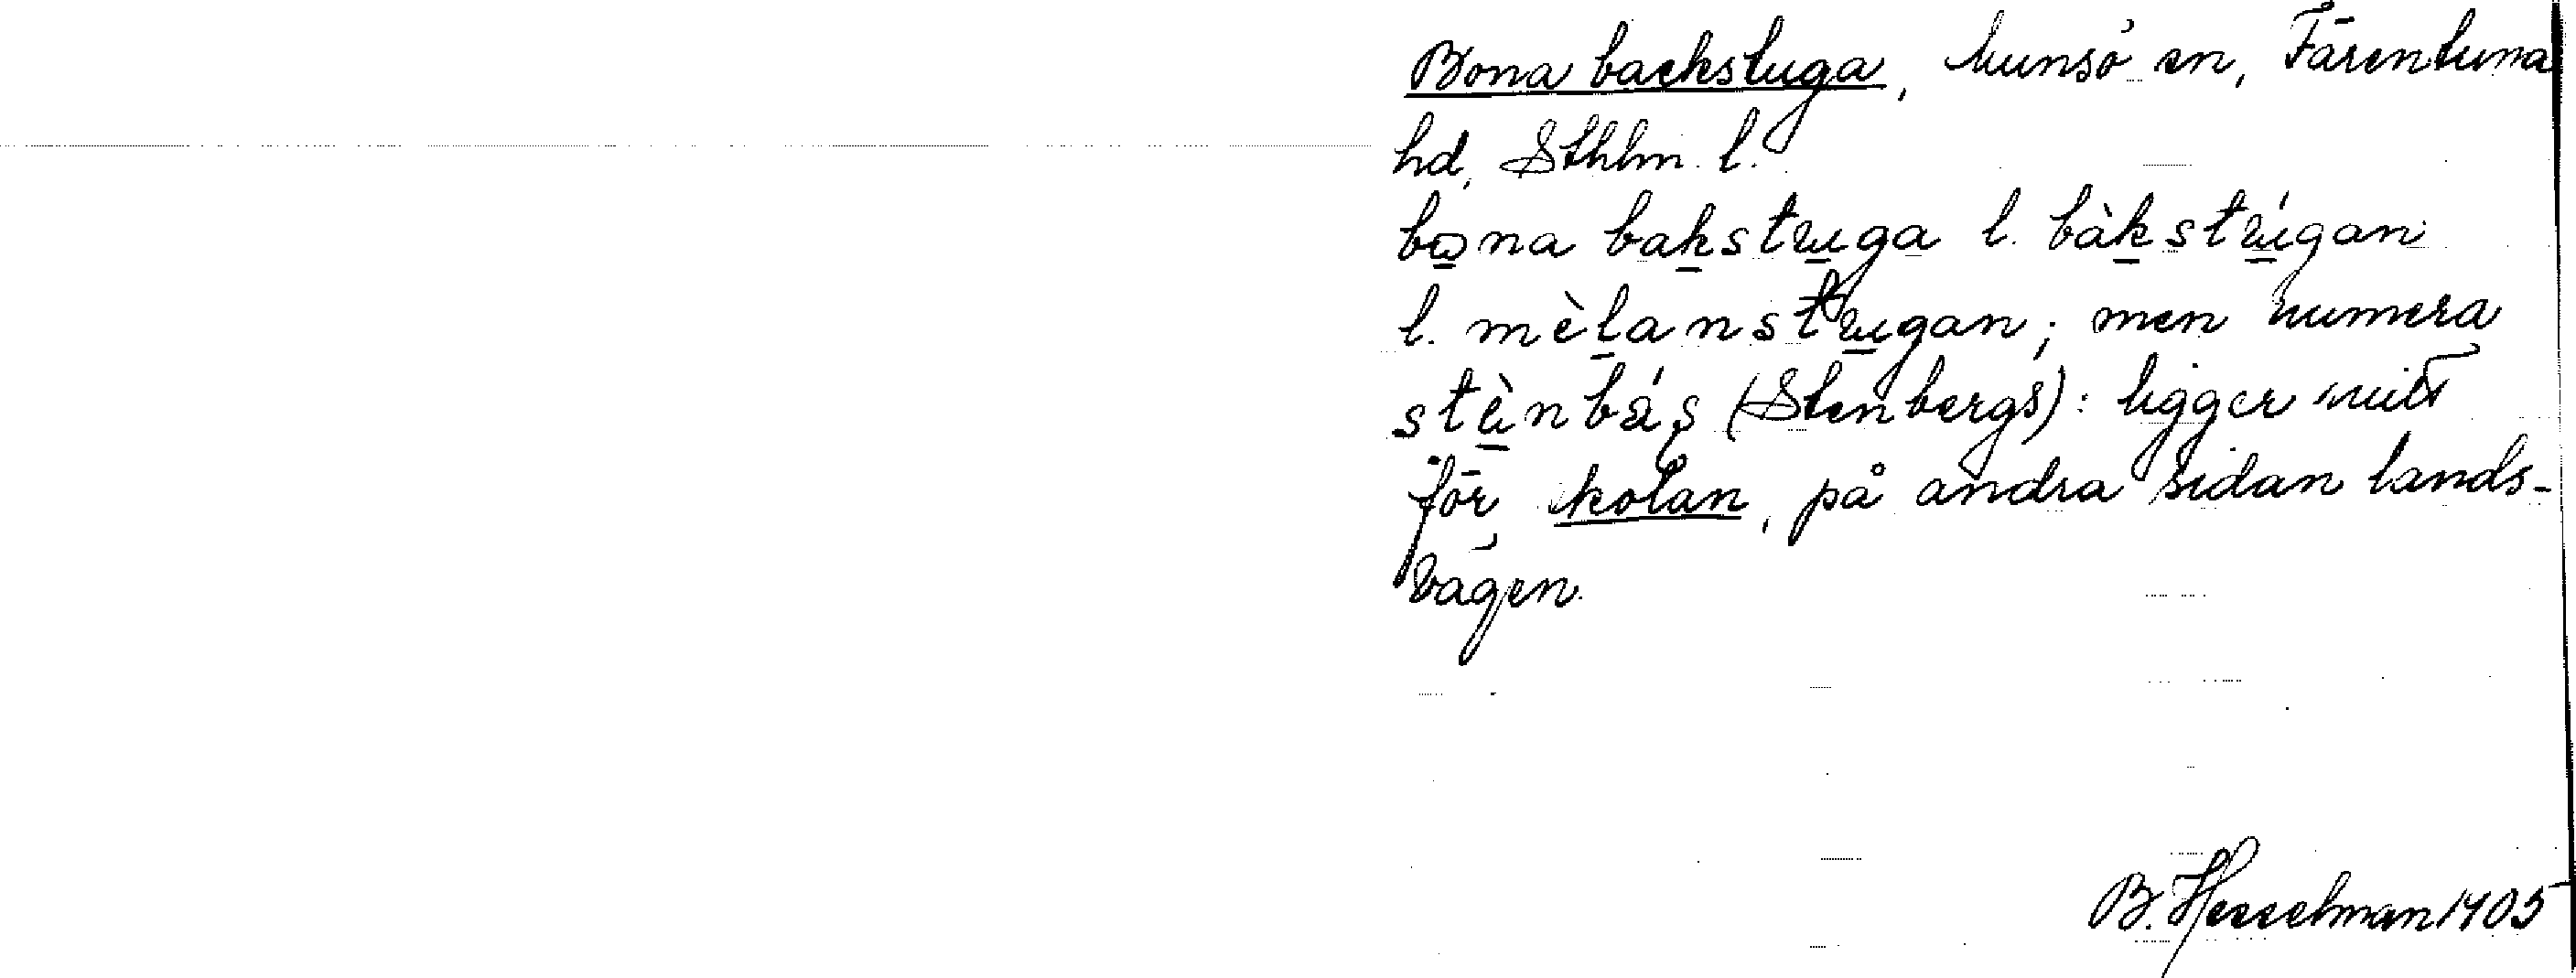 Bona backstuga, Munsö sn, Färentuna
hd, Sthlm. l.
bona bakstuga l. bàkstúgan
l. mèlanstugan; men numera
stènbás (Stenbergs): ligger mitt
för skolan, på andra sidan lands-
vägen.
B. Hesselman 1905